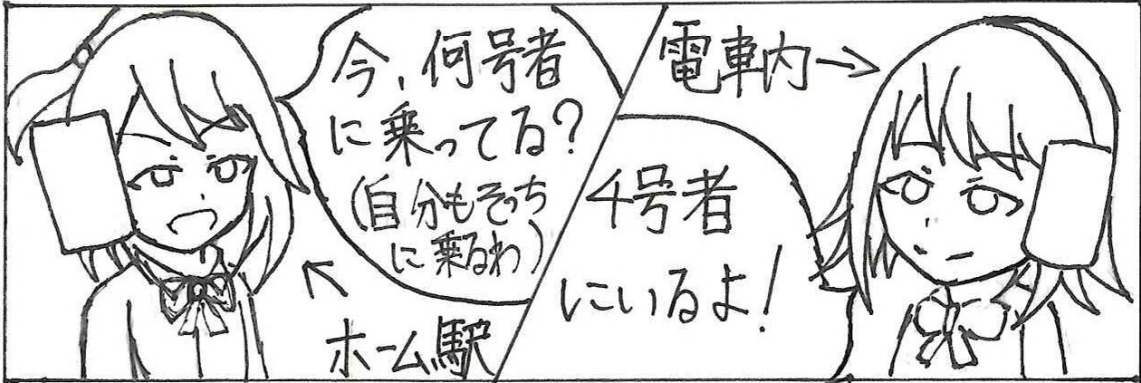 今、何号者
に乗ってる?
(自分もそっち
に乗るわ)
ホーム駅
電車内→
4号者
にいるよ!